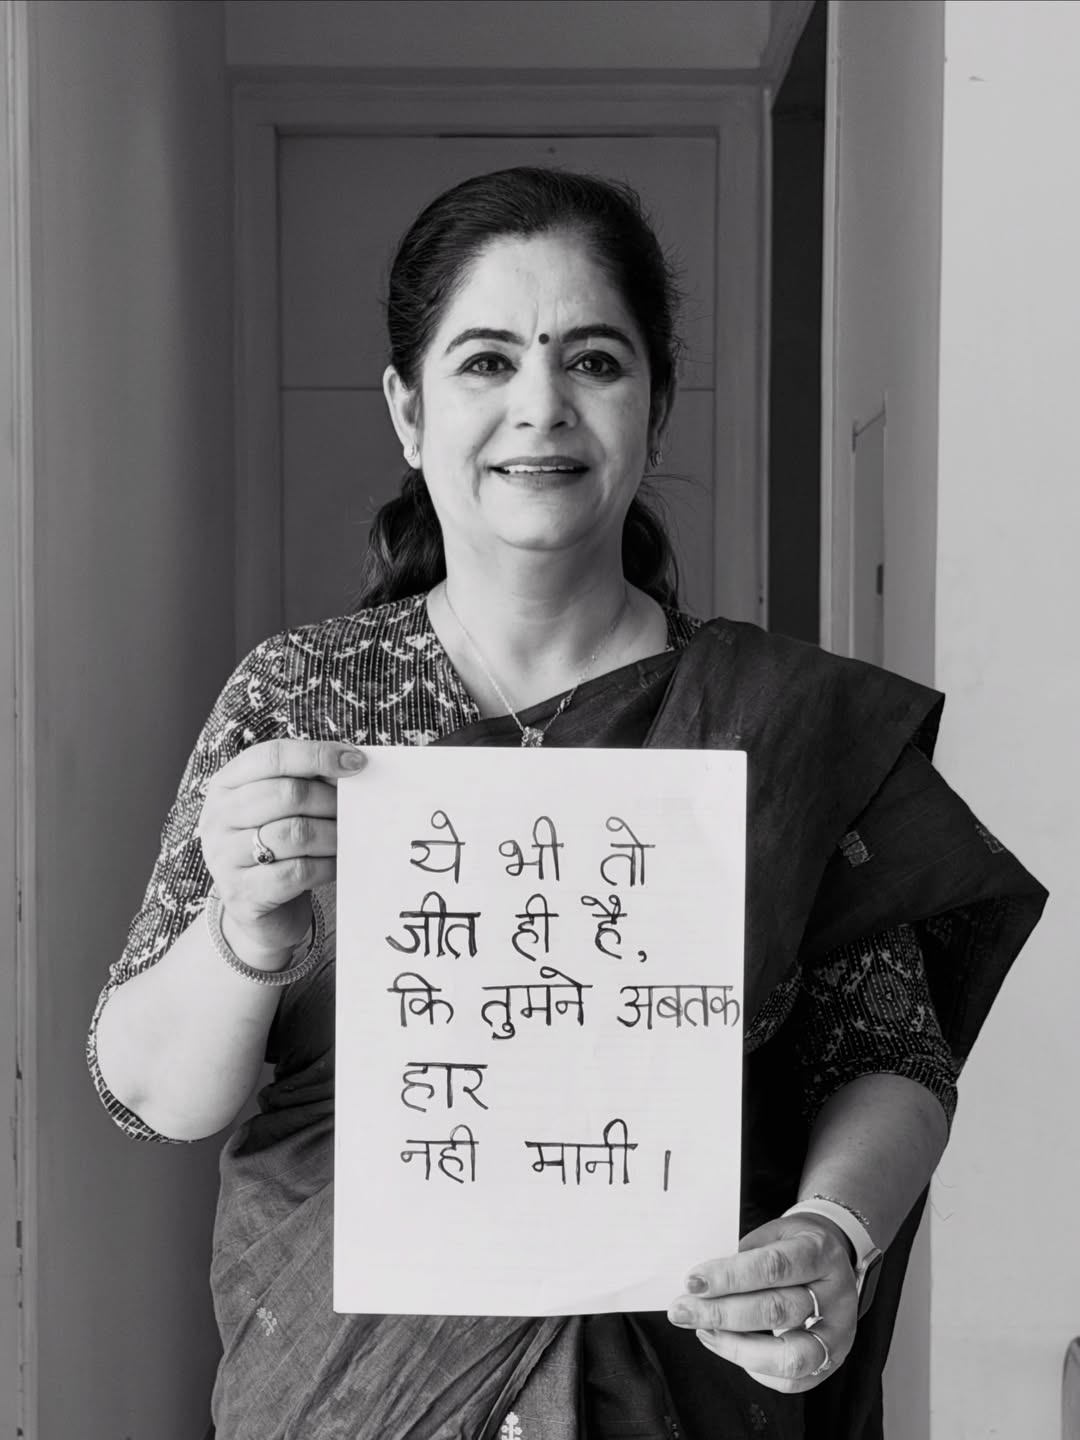 ये भी तो
जीत ही है,
कि तुमने अबतक
हार
नही मानी ।